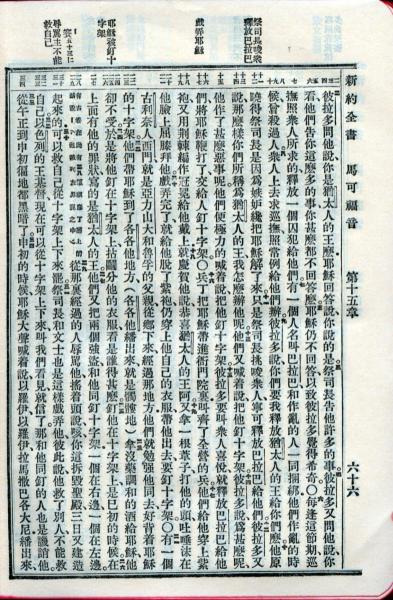 新約全書 馬可福音 第十五章 六十六
祭司長唆衆
釋放巴拉巴
戲弄耶穌
耶穌被釘十
字架
辱罵主不能
救自己
彼拉多問他說你是猶太人的王麽耶穌回答說你說的是祭司長告他許多的事彼拉多又問他說你
看他們告你這麽多的事你甚麽都不回答麽耶穌仍不回答以致彼拉多覺得希奇〇每逢這節期巡
撫照衆人所求的釋放一個囚犯給他們有一個人名叫巴拉巴和作亂的人一同捆綁他們作亂的時
候曾殺過人衆人上去求巡撫照常例給他們辦彼拉多說你們要我釋放猶太人的王給你們麽他原
曉得祭司長是因爲嫉妒纔把耶穌解了來只是祭司長挑唆衆人寧可釋放巴拉巴給他們彼拉多又
說那麽樣你們所稱爲猶太人的王我怎麽辦他呢他們又喊着說把他釘十字架彼拉多說爲甚麽呢
他作了甚麽惡事呢他們便極力的喊着說把他釘十字架彼拉多要叫衆人喜悅就釋放巴拉巴給他
們將耶穌鞭打了交給人釘十字架〇兵丁把耶穌帶進衙門院裏叫齊了全營的兵他們給他穿上紫
袍又用荆棘編作冠冕給他戴上就慶賀他說恭喜猶太人的王阿又拿一根葦子打他的頭吐唾沫在
他臉上屈膝拜他戲弄完了就給他脫了紫袍仍穿上他自己的衣服帶他出去要釘十字架〇有一個
古利奈人西門就是亞力山大和魯孚的父親從鄉下來經過那地方他們就勉强他同去好背着耶穌
的十字架他們帶耶穌到了各各他地方、(各各他繙出來就是髑髏地)拿沒藥調和的酒給耶穌他
却不受於是將他釘在十字架上拈鬮分他的衣服看是誰得甚麽釘他在十字架上是巳初的時候在
上面有他的罪狀寫的是猶太人的王他們又把兩個强盜和他同釘十字架一個在右邊一個在左邊
從那裏經過的人辱罵他搖着頭說咳你這拆毀聖殿三日又建造
起來的可以救自己從十字架上下來罷祭司長和文士也是這樣戲弄他彼此說他救了別人不能救
自己以色列的王基督現在可以從十字架上下來叫我們看見就信了那和他同釘的人也是譏誚他
從午正到申初徧地都黑暗了申初的時候耶穌大聲喊着說以羅伊以羅伊拉馬撒巴各大尼繙出來